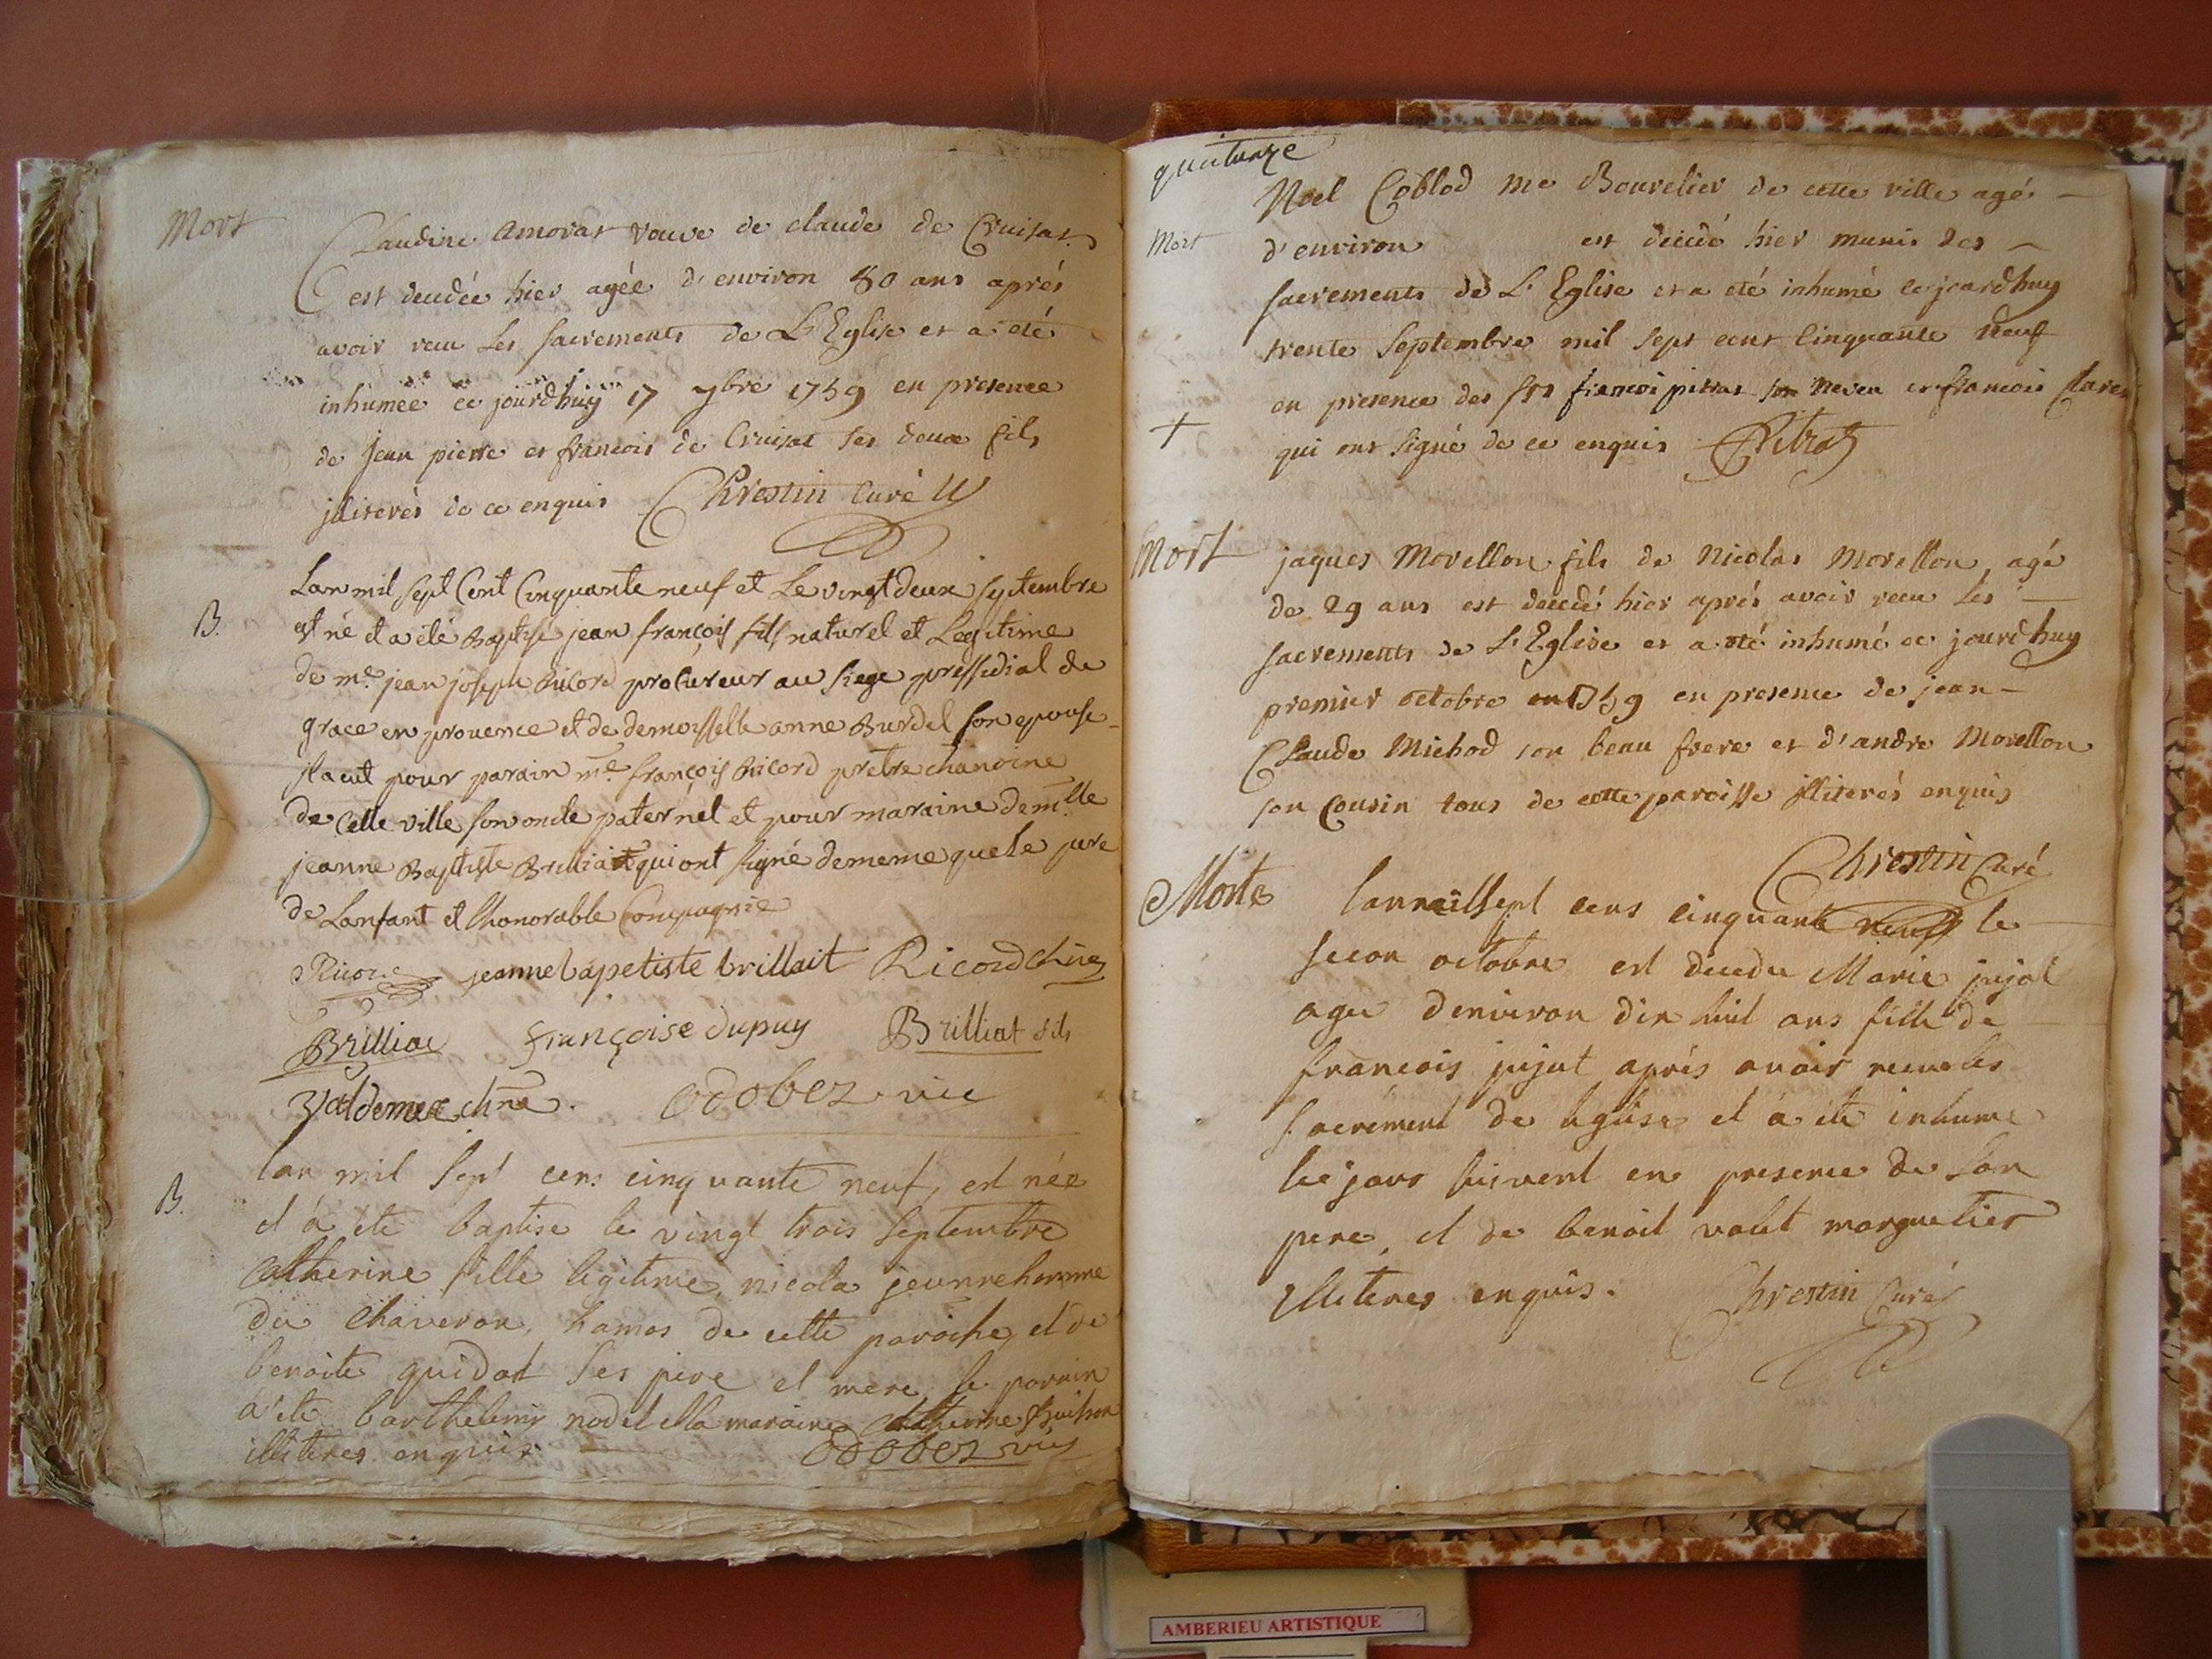 Mort
Claudine Amorat veuve de claude de Cruisat
est decedée hier agée d'environ 80 ans aprés
avoir recu les sacrements de L'Eglise et a eté
inhumée ce jourdhuy 17 7bre 1759 en presence
de jean pierre et francois de Cruisat ses deux fils
jliterés de ce enquis Chrestin Curé
B.
Lan mil sept Cent Cinquante neuf et Le vingt deux septembre
est né et a été Baptisé jean françois fils naturel et Legitime
de me jean joseph Ricord procureur au siege pressidial de
grace en provence et de demoisselle anne Burdel son epouse
il a eut pour parain me françois Ricord pretre chanoine
de Cette ville son oncle paternel et pour maraine demlle
jeanne Baptiste Brilliat qui ont signé de meme que le pere
de Lanfant et lhonorable Compagnie
Ricord jeanne bapetiste brillait Ricord chne
Brilliat françoise dupuy Brilliat fils
Valdemer chne. Odobez vic
B.
lan mil sept cens cinquante neuf, est née
et à ete baptise le vingt trois septembre
Catherine fille ligitime, nicola jeunnehomme
du Chaveron, hamos de cette paroiche, et de
benoite guidat ses pere et mere, le parrin
a ete barthelemy nodet ella maraine Catherine
illiteres enquis Odobez vic
quatorze
Mort
Noel Coblod me Bourelier de cette ville agé
d'environ est decedé hier munis des
sacrements de L'Eglise et a eté inhumé ce jourdhuy
trente Septembre mil sept cent Cinquante neuf
en presence des srs francois pitrat son neveu et francois
+
qui ont signé de ce enquis Pitrat
Mort
jaques Morellon fils de Nicolas Morellon agé
de 29 ans est decedé hier aprés avoir recu les
sacrements de L'Eglise et a eté inhumé ce jourdhuy
premier octobre 1759 en presence de jean
Claude Michod son beau frere et d'andre Morellon
son Cousin tous de cette paroisse illiterés enquis
Chrestin Curé
Morte
lan mil sept cens cinquante neuf le
secon octobre est decedu Marie jujat
agee denviron dix huit ans fille de
francois jujat aprés avoir recu les
sacrément de leglise et à ete inhume
le jour suivent en presence de son
pere, et de benoit valet marguelier
Illiteres enquis. Chrestin Curé
AMBERIEU ARTISTIQUE